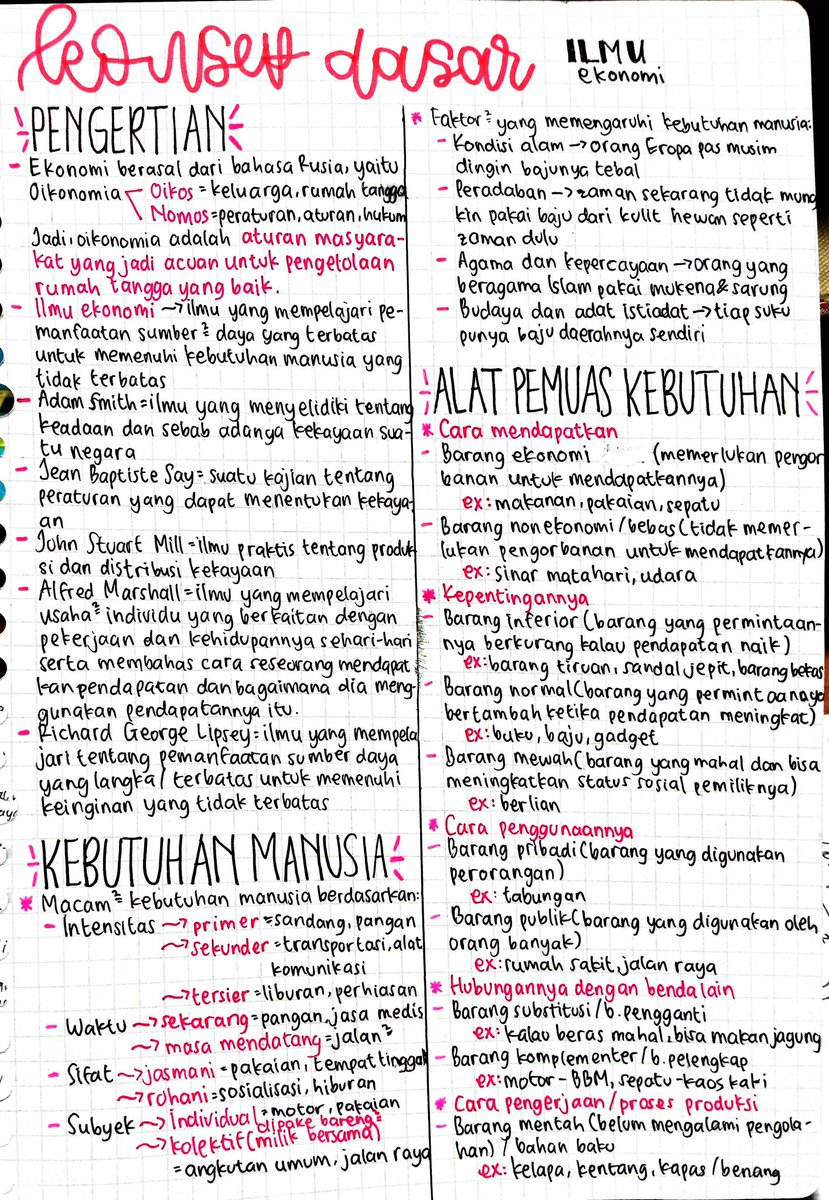 konsep dasar
ILMU
ekonomi
PENGERTIAN
- Ekonomi berasal dari bahasa Rusia, yaitu
Oikonomia Oikos = keluarga, rumah tangga
Nomos = peraturan, aturan, hukum
Jadi, oikonomia adalah aturan masyara-
kat yang jadi acuan untuk pengelolaan
rumah tangga yang baik.
- Ilmu ekonomi → ilmu yang mempelajari pe-
manfaatan sumber² daya yang terbatas
untuk memenuhi kebutuhan manusia yang
tidak terbatas
- Adam Smith = ilmu yang menyelidiki tentang
keadaan dan sebab adanya kekayaan sua-
tu negara
- Jean Baptiste Say = suatu kajian tentang
peraturan yang dapat menentukan kekaya-
an
- John Stuart Mill = ilmu praktis tentang produk
si dan distribusi kekayaan
- Alfred Marshall = ilmu yang mempelajari
usaha² individu yang berkaitan dengan
pekerjaan dan kehidupannya sehari-hari
serta membahas cara seseorang mendapat
kan pendapatan dan bagaimana dia meng-
gunakan pendapatannya itu.
- Richard George Lipsey = ilmu yang mempela
jari tentang pemanfaatan sumber daya
yang langka / terbatas untuk memenuhi
keinginan yang tidak terbatas
KEBUTUHAN MANUSIA
* Macam² kebutuhan manusia berdasarkan:
- Intensitas → primer = sandang, pangan
→ sekunder = transportasi, alat
komunikasi
→ tersier = liburan, perhiasan
- Waktu → sekarang = pangan, jasa medis
→ masa mendatang = jalan²
- Sifat → jasmani = pakaian, tempat tinggal
→ rohani = sosialisasi, hiburan
- Subyek → individual = motor, pakaian
dipake bareng²
→ kolektif (milik bersama)
= angkutan umum, jalan raya
* Faktor² yang memengaruhi kebutuhan manusia:
- Kondisi alam → orang Eropa pas musim
dingin bajunya tebal
- Peradaban → zaman sekarang tidak mung
kin pakai baju dari kulit hewan seperti
zaman dulu
- Agama dan kepercayaan → orang yang
beragama Islam pakai mukena & sarung
- Budaya dan adat istiadat → tiap suku
punya baju daerahnya sendiri
ALAT PEMUAS KEBUTUHAN
* Cara mendapatkan
- Barang ekonomi (memerlukan pengor
banan untuk mendapatkannya)
ex: makanan, pakaian, sepatu
- Barang nonekonomi / bebas (tidak memer-
lukan pengorbanan untuk mendapatkannya)
ex: sinar matahari, udara
* Kepentingannya
- Barang inferior (barang yang permintaan-
nya berkurang kalau pendapatan naik)
ex: barang tiruan, sandal jepit, barang bekas
- Barang normal (barang yang permintaannya
bertambah ketika pendapatan meningkat)
ex: buku, baju, gadget
- Barang mewah (barang yang mahal dan bisa
meningkatkan status sosial pemiliknya)
ex: berlian
* Cara penggunaannya
- Barang pribadi (barang yang digunakan
perorangan)
ex: tabungan
- Barang publik (barang yang digunakan oleh
orang banyak)
ex: rumah sakit, jalan raya
* Hubungannya dengan benda lain
- Barang substitusi / b. pengganti
ex: kalau beras mahal, bisa makan jagung
- Barang komplementer / b. pelengkap
ex: motor - BBM, sepatu - kaos kaki
* Cara pengerjaan / proses produksi
- Barang mentah (belum mengalami pengola-
han) / bahan baku
ex: kelapa, kentang, kapas / benang